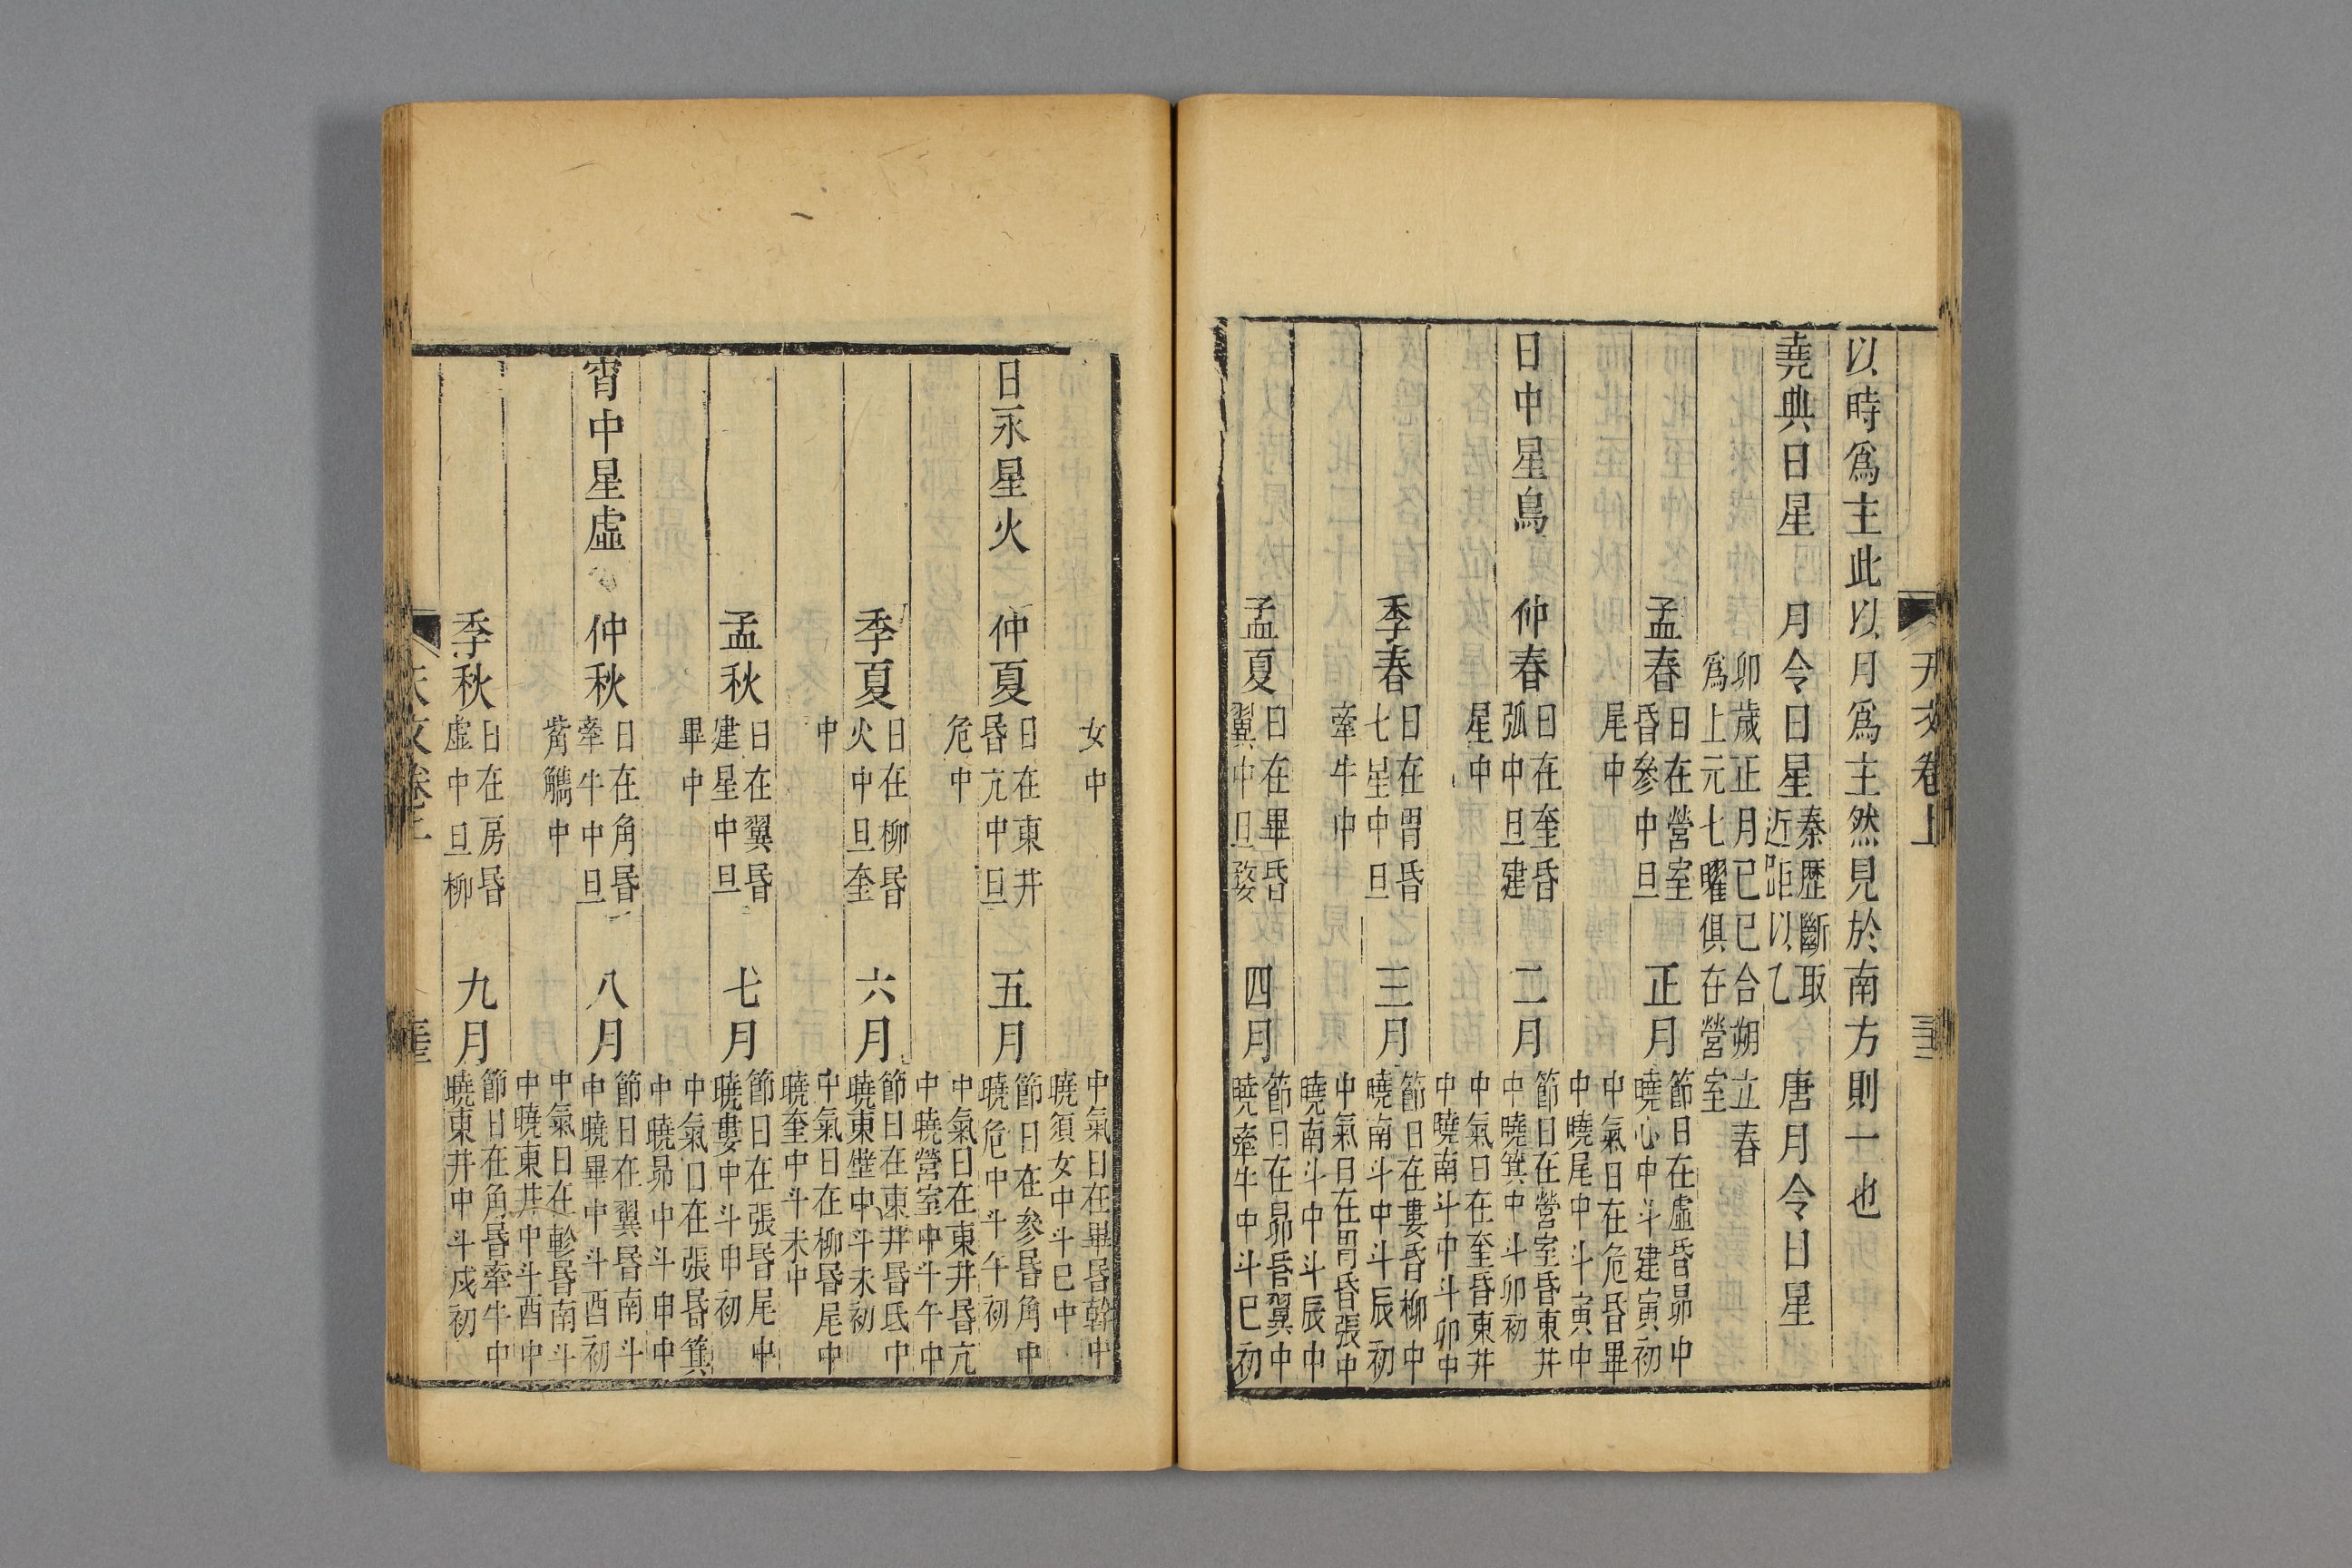 天文卷上
以時爲主此以月爲主然見於南方則一也
堯典日星 月令日星 秦歷斷取近距以乙 唐月令日星
卯歲正月已巳合朔立春
爲上元七曜俱在營室
孟春 日在營室昏參中旦 正月 節日在虛昏昴中曉心中斗建寅初
尾中 中氣日在危昏畢中曉尾中斗寅中
日中星鳥 仲春 日在奎昏弧中旦建 二月 節日在營室昏東井中曉箕中斗卯初
星中 中氣日在奎昏東井中曉南斗中斗卯中
季春 日在胃昏七星中旦 三月 節日在婁昏柳中曉南斗中斗辰初
牽牛中 中氣日在胃昏張中曉南斗中斗辰中
孟夏 日在畢昏翼中旦婺 四月 節日在昴昏翼中曉牽牛中斗巳初
女中 中氣日在畢昏軫中曉須女中斗巳中
日永星火 仲夏 日在東井昏亢中旦 五月 節日在參昏角中曉危中斗午初
危中 中氣日在東井昏亢中曉營室中斗午中
季夏 日在柳昏火中旦奎 六月 節日在東井昏氐中曉東壁中斗未初
中 中氣日在柳昏尾中曉奎中斗未中
孟秋 日在翼昏建星中旦 七月 節日在張昏尾中曉婁中斗申初
畢中 中氣日在張昏箕中曉昴中斗申中
宵中星虛 仲秋 日在角昏牽牛中旦 八月 節日在翼昏南斗中曉畢中斗酉初
觜觿中 中氣日在軫昏南斗中曉東井中斗酉中
季秋 日在房昏虛中旦柳 九月 節日在角昏牽牛中曉東井中斗戌初
天文卷上